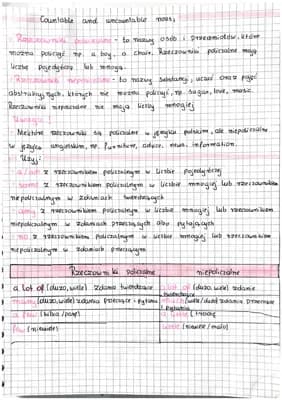 Countable and uncountable nouns,
- Rzeczowniki policzalne - to nazwy osób i przedmiotów, które
można policzyć np. a boy, a chair. Rzeczowniki policzalne mają
liczbę pojedyńczą lub mnogą.
- Rzeczowniki niepoliczalne - to nazwy substancji, uczuć oraz pojęć
abstrakcyjnych, których nie można policzyć, np. sugar, love, music.
Rzeczowniki niepoliczalne nie mają liczby mnogiej
Uwaga!
- Niektóre rzeczowniki są policzalne w języku polskim, ale niepoliczalne
w języku angielskim, np. furniture, advice, news, information.
- Użyj:
- a / an z rzeczownikiem policzalnym w liczbie pojedynczej
- some z rzeczownikiem policzalnym w liczbie mnogiej lub rzeczownikiem
niepoliczalnym w zdaniach twierdzących
- any z rzeczownikiem policzalnym w liczbie mnogiej lub rzeczownikiem
niepoliczalnym w zdaniach przeczących albo pytających
- no z rzeczownikiem policzalnym w liczbie mnogiej lub rzeczownikiem
niepoliczalnym w zdaniach przeczących
Rzeczowniki policzalne niepoliczalne
a lot of (dużo, wiele) zdania twierdzące a lot of (dużo, wiele) zdanie twierdzące
many (dużo, wiele) zdania przeczące i pytania much (wiele/dużo) zdania przeczące i pytania
a few (kilka/parę) a little (trochę)
few (niewiele) little (niewiele/mało)